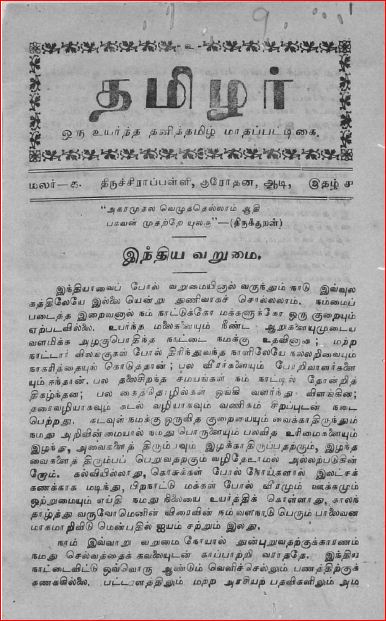 உ
தமிழர்
ஒரு உயர்ந்த தனித்தமிழ் மாதப்பட்டிகை.
மலர்—௧. திருச்சிராப்பள்ளி, குரோதன, ஆடி, இதழ் ௪
“அகரமுதல வெழுத்தெல்லாம் ஆதி
பகவன் முதற்றே யுலகு”—(திருக்குறள்)
இந்திய வறுமை.
இந்தியாவைப் போல் வறுமையினால் வருந்தும் நாடு இவ்வுல
கத்திலேயே இல்லை யென்று துணிவாகச் சொல்லலாம். நம்மைப்
படைத்த இறைவனால் நம் நாட்டுக்கோ மக்களுக்கோ ஒரு குறையும்
ஏற்படவில்லை. உயர்ந்த மலைகளையும் நீண்ட ஆறுகளையுமுடைய
வளமிக்க அழகுபொதிந்த நாட்டை நமக்கு உதவினான்; மற்ற
நாட்டார் விலங்குகள் போல் திரிந்துவந்த நாளிலேயே நல்லறிவையும்
நாகரிகத்தையும் கொடுத்தான்; பல வீரர்களையும் பேரறிவாளர்களை
யும் ஈந்தான். பல தலைசிறந்த சமயங்கள் நம் நாட்டில் தோன்றித்
திகழ்ந்தன; பல கைத்தொழில்கள் ஓங்கி வளர்ந்து விளங்கின;
தரைவழியாகவும் கடல் வழியாகவும் வணிகம் சிறப்புடன் நடை
பெற்றது. கடவுள் நமக்கு ஒருவித குறையையும் வைக்காதிருந்தும்
நமது அறிவின்மையால் நமது பொருளையும் பலவித உரிமைகளையும்
இழந்து, அவைகளைத் திரும்பவும் இழக்காதிருப்பதற்கும், இழந்த
வைகளைத் திரும்பப் பெறுவதற்கும் வழிதேடாமல் அல்லற்படுகின்
றோம். கல்வியில்லாது, கொசுக்கள் போல் நோய்களால் இலட்சக்
கணக்காக மடிந்து, பிறநாட்டு மக்கள் போல் வீரமும் ஊக்கமும்
ஒற்றுமையும் எய்தி நமது நிலையை உயர்த்திக் கொள்ளாது, காலந்
தாழ்த்து வருவோமெனின் விரைவின் நம் வளநாடு பெரும் பாலைவன
மாகமாறிவிடு மென்பதில் ஐயம் சற்றும் இலது.
நாம் இவ்வாறு வறுமை நோயால் துன்புறுவதற்குக்காரணம்
நமது செல்வத்தைக் கவலையுடன் காப்பாற்றி வராததே. இந்திய
நாட்டைவிட்டு ஒவ்வொரு ஆண்டும் வெளிச்செல்லும் பணத்திற்குக்
கணக்கில்லை. பட்டாளத்திலும் மற்ற அரசியற் பதவிகளிலும் அம